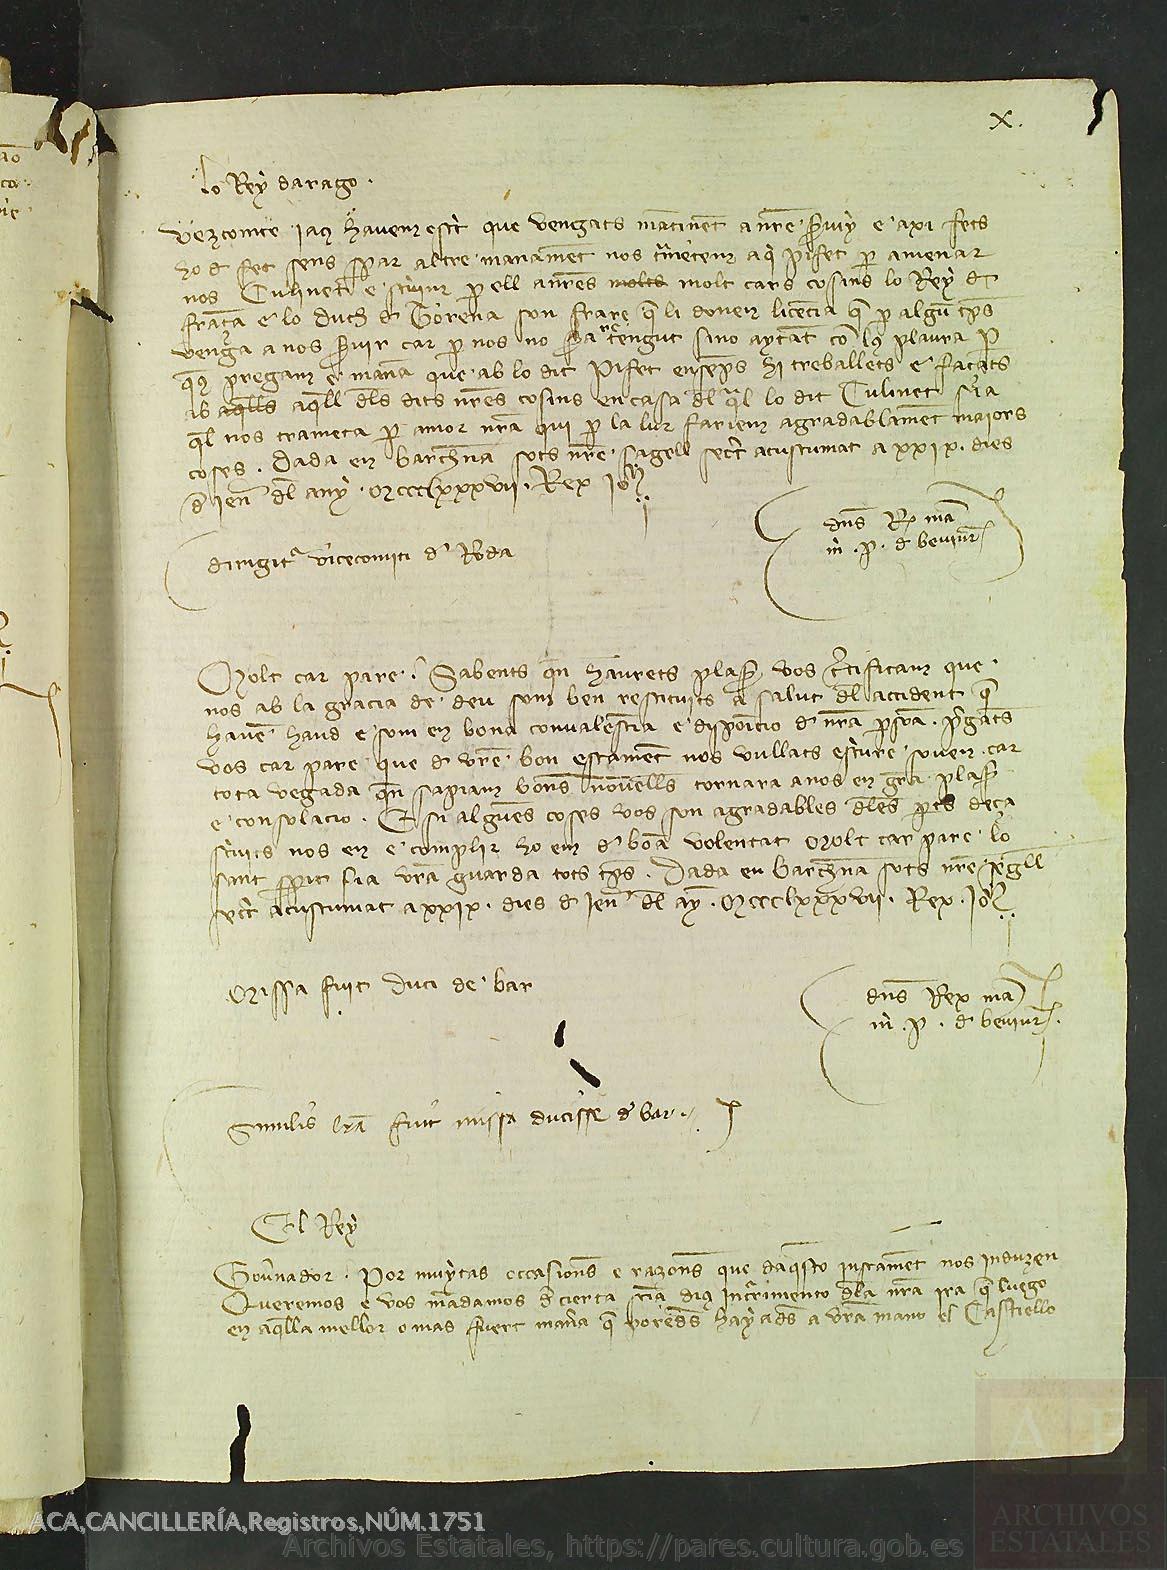 X.
Lo Rey darago.
Vezcomte jaus havem escrit que vengats mantinent a nre servey e axi fets
ho de fet sens sperar altre manament nos trametem aqi Pifet per amenar
nos Culinet e scrivim per ell a nres molts molt cars cosins lo Rey de
França e lo duch de Torena son frare que li donen licencia que per algun temps
venga a nos servir car per nos no sera retengut sino aytant com los plaura P
queus pregam e manam que ab lo dit Pifet ensemps hi treballets e façats
ab aqlls aqll dels dits nres cosins en casa del qual lo dit Culinet sera
quel nos trameta per amor nra qui per la lur fariem agradablament maiors
coses. Dada en Barchna sots nre sagell secret acustumat a xxix. dies
de Jener del any. Mccclxxxvii. Rex Johs
dirigitr vicecomiti de Roda
dns Rex man
m. p. de beviure
Molt car pare. Sabents quen haurets plaser vos certificam que
nos ab la gracia de deu som ben restituits a salut del accident que
havem haud e som en bona convalescencia e disposicio de nra persona. pregants
vos car pare que de vre bon estament nos vullats escriure soven car
tota vegada quen sapiam bons novells tornara a nos en gran plaser
e consolacio. E si algunes coses vos son agradables deles parts deça
scrivits nos en e complir ho em de bona volentat Molt car pare lo
sant sperit sia vra guarda tots temps. Dada en barchna sots nre segell
secret acustumat a xxix. dies de Jener del any. Mccclxxxvii. Rex. Johs
Missa fuit duci de bar
dns Rex man
m. p. de beviure.
Similis lra fuit missa ducisse de bar.
El Rey
Governador. Por muytas occasiones e razones que daquesto justament nos induzen
Queremos e vos mandamos de cierta sciencia dius incorrimento dela nra ira que luego
en aqlla mellor o mas fuert manera que poredes hayades a vra mano el Castiello
ACA,CANCILLERÍA,Registros,NÚM.1751
Archivos Estatales, https://pares.cultura.gob.es
ARCHIVOS
ESTATALES